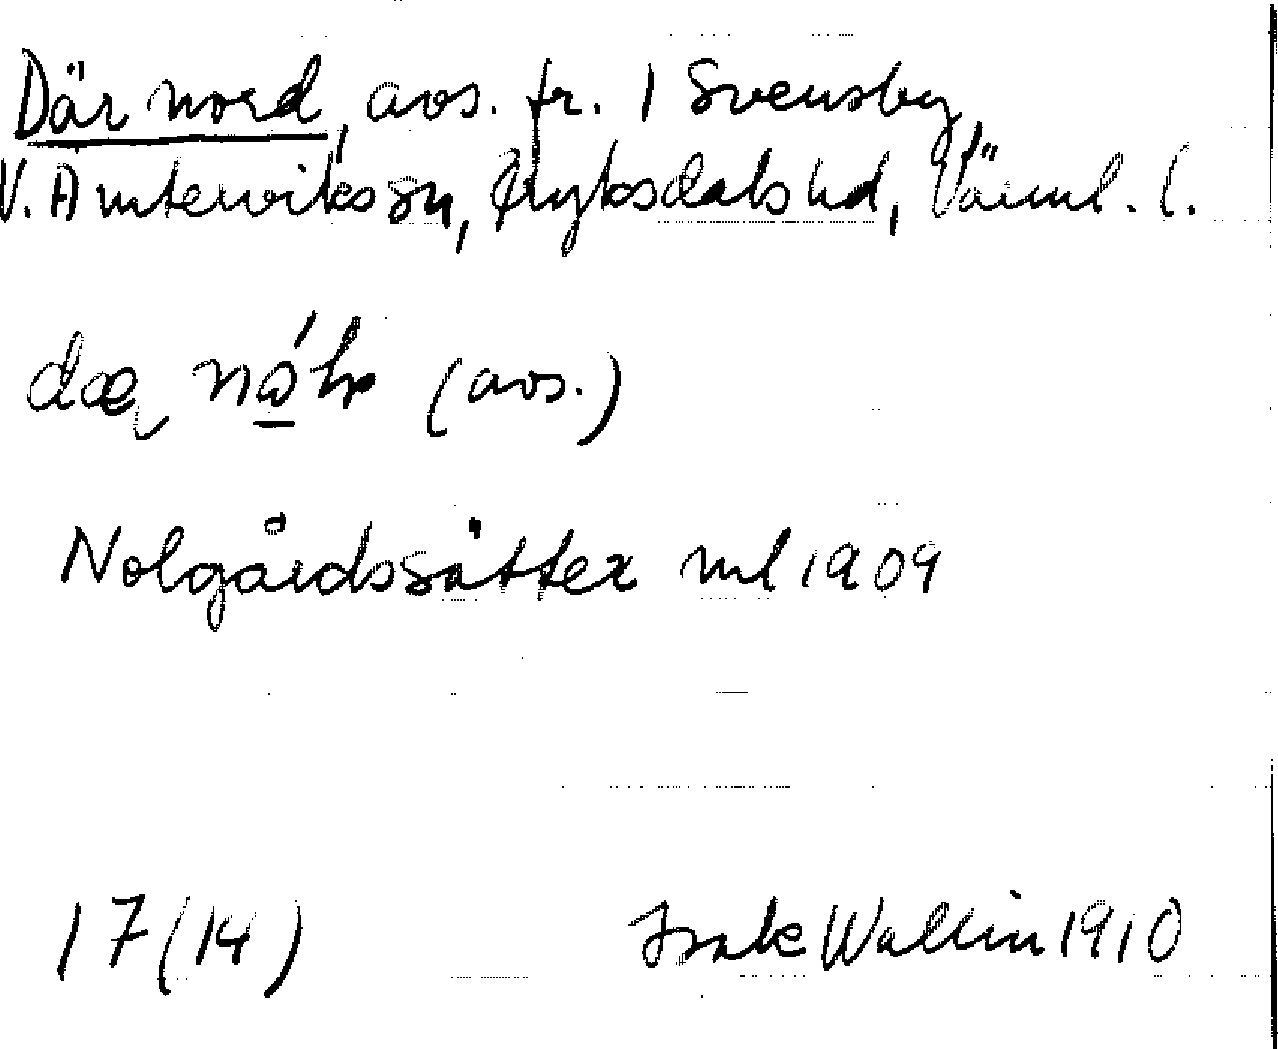 Där nord, avs. fr. 1 Svensby,
V. Ämterviks sn, Fryksdals hd, Värml. l.
dæ (avs.)
Nolgårdssätter ml 1909
17 (14) Isak Wallin 1910